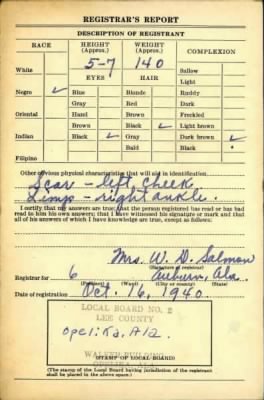 REGISTRAR'S REPORT
DESCRIPTION OF REGISTRANT
RACE HEIGHT (Approx.) WEIGHT (Approx.) COMPLEXION
5-7 140
White Sallow
EYES HAIR Light
Negro ✓ Blue Blonde Ruddy
Gray Red Dark
Oriental Hazel Brown Freckled
Brown Black ✓ Light brown
Indian Black ✓ Gray Dark brown ✓
Bald Black
Filipino
Other obvious physical characteristics that will aid in identification
Scar - left cheek
Limp - right ankle.
I certify that my answers are true; that the person registered has read or has had
read to him his own answers; that I have witnessed his signature or mark and that
all of his answers of which I have knowledge are true, except as follows:
Mrs. W. D. Salmon
(Signature of registrar)
Registrar for 6 Auburn, Ala.
(Precinct) (Ward) (City or county) (State)
Date of registration Oct. 16, 1940.
LOCAL BOARD NO. 2
LEE COUNTY
Opelika, Ala.
WALKER BUILDING
OPELIKA, ALA.
(STAMP OF LOCAL BOARD)
(The stamp of the Local Board having jurisdiction of the registrant
shall be placed in the above space.)